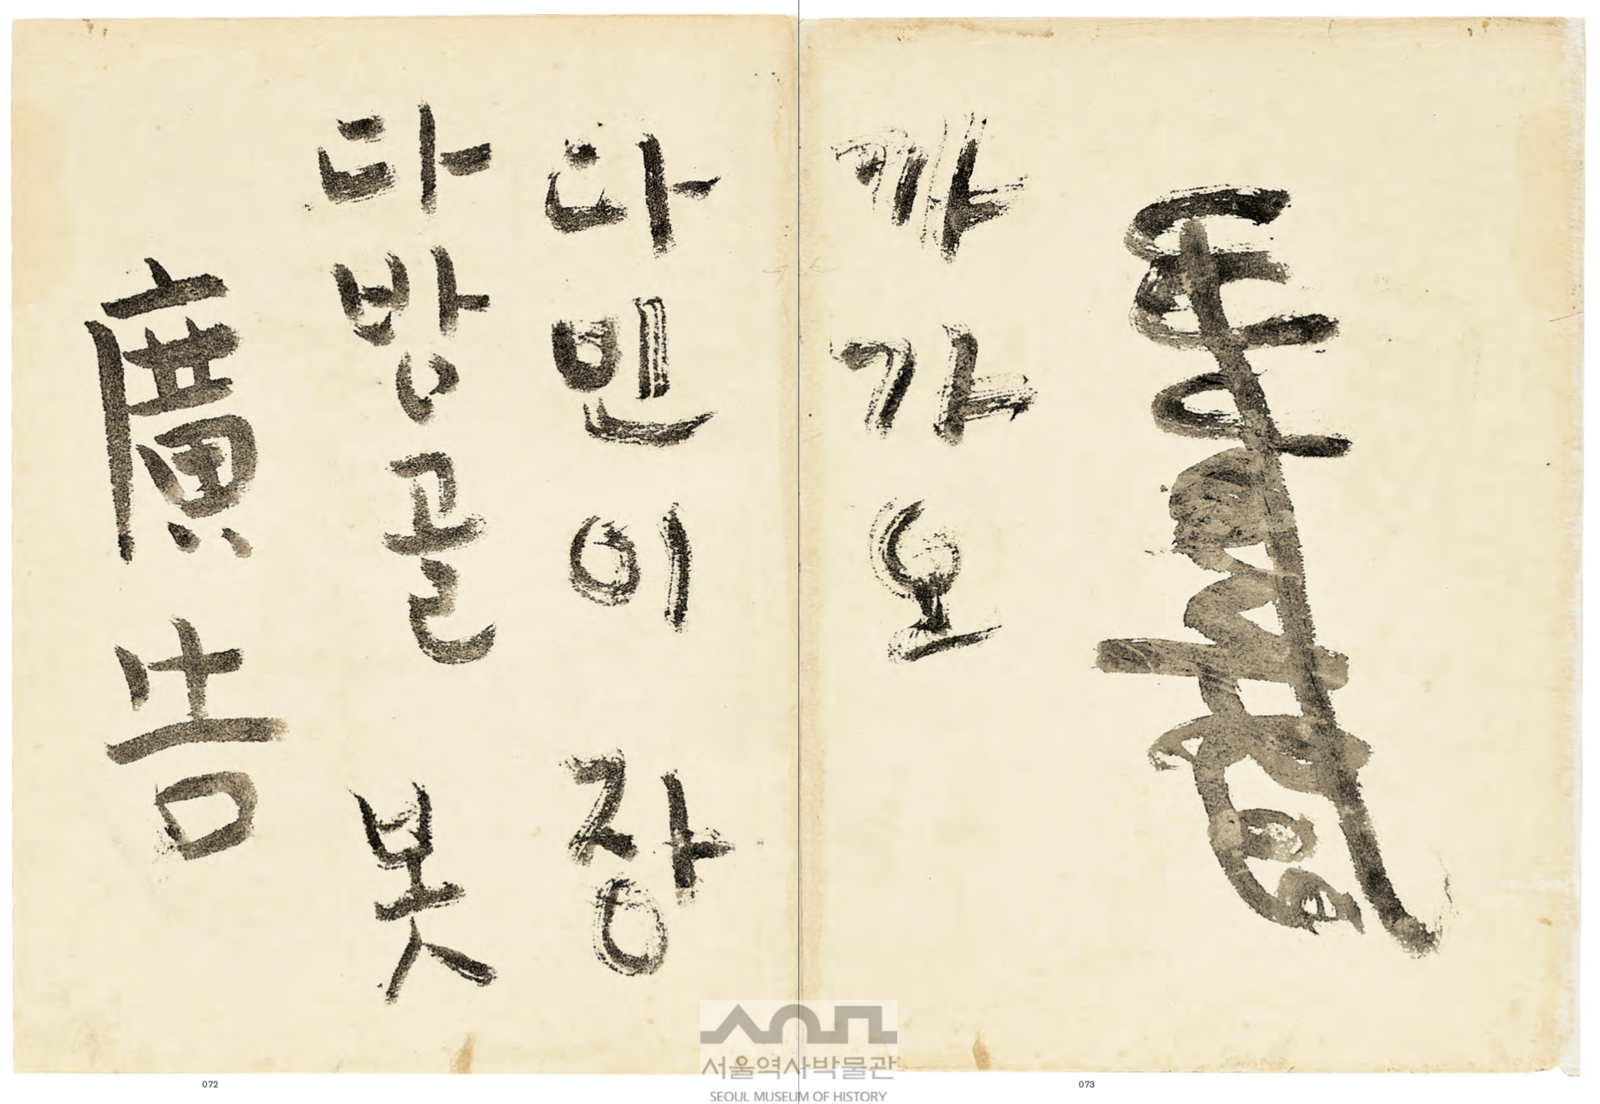 廣告
다방골 봇
다민이 장
까가오
072
073
서울역사박물관
SEOUL MUSEUM OF HISTORY